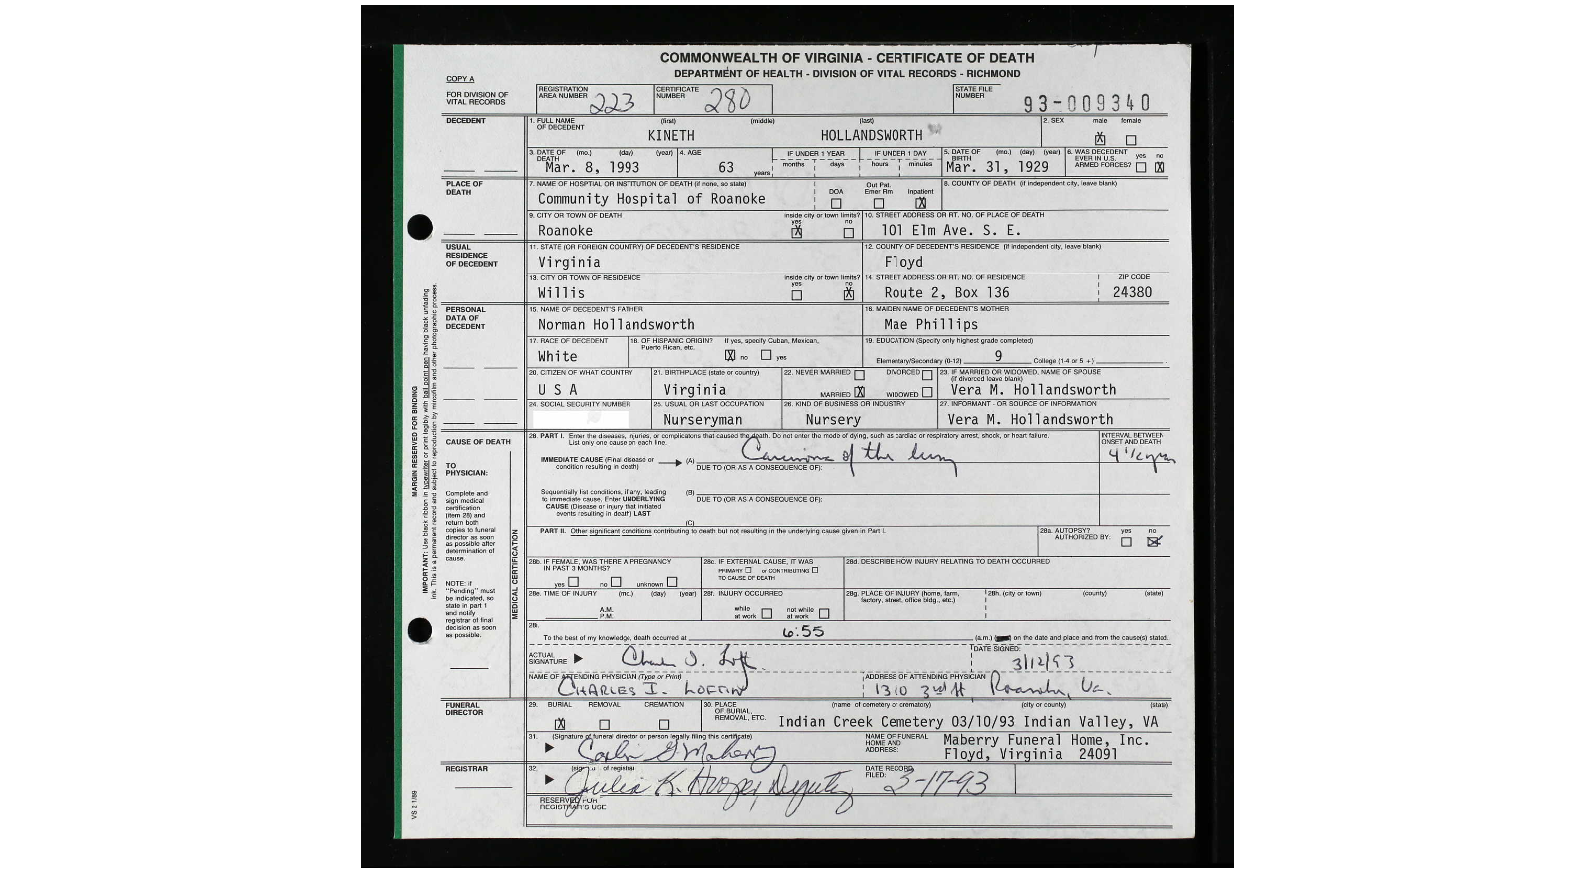 COMMONWEALTH OF VIRGINIA - CERTIFICATE OF DEATH
DEPARTMENT OF HEALTH - DIVISION OF VITAL RECORDS - RICHMOND
COPY A
FOR DIVISION OF VITAL RECORDS
REGISTRATION AREA NUMBER 223 CERTIFICATE NUMBER 280 STATE FILE NUMBER 93-009340
DECEDENT
1. FULL NAME OF DECEDENT (first) (middle) (last) 2. SEX male female
KINETH HOLLANDSWORTH X
3. DATE OF DEATH (mo.) (day) (year) 4. AGE IF UNDER 1 YEAR IF UNDER 1 DAY 5. DATE OF BIRTH (mo.) (day) (year) 6. WAS DECEDENT EVER IN U.S. ARMED FORCES? yes no
Mar. 8, 1993 63 years months days hours minutes Mar. 31, 1929 X
PLACE OF DEATH
7. NAME OF HOSPTIAL OR INSTITUTION OF DEATH (if none, so state) DOA Out Pat. Emer Rm Inpatient 8. COUNTY OF DEATH (if independent city, leave blank)
Community Hospital of Roanoke X
9. CITY OR TOWN OF DEATH inside city or town limits? yes no 10. STREET ADDRESS OR RT. NO. OF PLACE OF DEATH
Roanoke X 101 Elm Ave. S. E.
USUAL RESIDENCE OF DECEDENT
11. STATE (OR FOREIGN COUNTRY) OF DECEDENT'S RESIDENCE 12. COUNTY OF DECEDENT'S RESIDENCE (if independent city, leave blank)
Virginia Floyd
13. CITY OR TOWN OF RESIDENCE inside city or town limits? yes no 14. STREET ADDRESS OR RT. NO. OF RESIDENCE ZIP CODE
Willis X Route 2, Box 136 24380
PERSONAL DATA OF DECEDENT
15. NAME OF DECEDENT'S FATHER 16. MAIDEN NAME OF DECEDENT'S MOTHER
Norman Hollandsworth Mae Phillips
17. RACE OF DECEDENT 18. OF HISPANIC ORIGIN? If yes, specify Cuban, Mexican, Puerto Rican, etc. 19. EDUCATION (Specify only highest grade completed)
White X no yes Elementary/Secondary (0-12) 9 College (1-4 or 5 +)
20. CITIZEN OF WHAT COUNTRY 21. BIRTHPLACE (state or country) 22. NEVER MARRIED DIVORCED 23. IF MARRIED OR WIDOWED, NAME OF SPOUSE (if divorced leave blank)
U S A Virginia MARRIED X WIDOWED Vera M. Hollandsworth
24. SOCIAL SECURITY NUMBER 25. USUAL OR LAST OCCUPATION 26. KIND OF BUSINESS OR INDUSTRY 27. INFORMANT - OR SOURCE OF INFORMATION
Nurseryman Nursery Vera M. Hollandsworth
CAUSE OF DEATH
28. PART I. Enter the diseases, injuries, or complications that caused the death. Do not enter the mode of dying, such as cardiac or respiratory arrest, shock, or heart failure. List only one cause on each line. INTERVAL BETWEEN ONSET AND DEATH
IMMEDIATE CAUSE (Final disease or condition resulting in death) (A) Carcinoma of the lung 4 1/2
DUE TO (OR AS A CONSEQUENCE OF):
Sequentially list conditions, if any, leading to immediate cause. Enter UNDERLYING CAUSE (Disease or injury that initiated events resulting in death) LAST
(B)
DUE TO (OR AS A CONSEQUENCE OF):
(C)
PART II. Other significant conditions contributing to death but not resulting in the underlying cause given in Part I.
28a. AUTOPSY? AUTHORIZED BY: yes no X
28b. IF FEMALE, WAS THERE A PREGNANCY IN PAST 3 MONTHS? yes no unknown
28c. IF EXTERNAL CAUSE, IT WAS PRIMARY or CONTRIBUTING TO CAUSE OF DEATH
28d. DESCRIBE HOW INJURY RELATING TO DEATH OCCURRED
28e. TIME OF INJURY (mo.) (day) (year) A.M. P.M.
28f. INJURY OCCURRED while at work not while at work
28g. PLACE OF INJURY (home, farm, factory, street, office bldg., etc.)
28h. (city or town) (county) (state)
28i.
To the best of my knowledge, death occurred at 6:55 (a.m.) on the date and place and from the cause(s) stated.
ACTUAL SIGNATURE DATE SIGNED: 3/12/93
NAME OF ATTENDING PHYSICIAN (Type or Print) ADDRESS OF ATTENDING PHYSICIAN
CHARLES I. LOFTIN 1310 3rd St, Roanoke, Va.
TO PHYSICIAN:
Complete and sign medical certification (item 28) and return both copies to funeral director as soon as possible after determination of cause.
NOTE: if "Pending" must be indicated, so state in part 1 and notify registrar of final decision as soon as possible.
MEDICAL CERTIFICATION
FUNERAL DIRECTOR
29. BURIAL REMOVAL CREMATION 30. PLACE OF BURIAL, REMOVAL, ETC. (name of cemetery or crematory) (city or county) (state)
X Indian Creek Cemetery 03/10/93 Indian Valley, VA
31. (Signature of funeral director or person legally filing this certificate) NAME OF FUNERAL HOME AND ADDRESS:
Maberry Funeral Home, Inc.
Floyd, Virginia 24091
REGISTRAR
32. (signature of registrar) DATE RECORD FILED:
Julia K. Hooper, Deputy 3-17-93
RESERVED FOR REGISTRAR'S USE
MARGIN RESERVED FOR BINDING
IMPORTANT: Use black ribbon in typewriter or print legibly with ball point pen having black unfading ink. This is a permanent record and subject to reproduction by microfilm and other photographic process.
VS 2 1/89